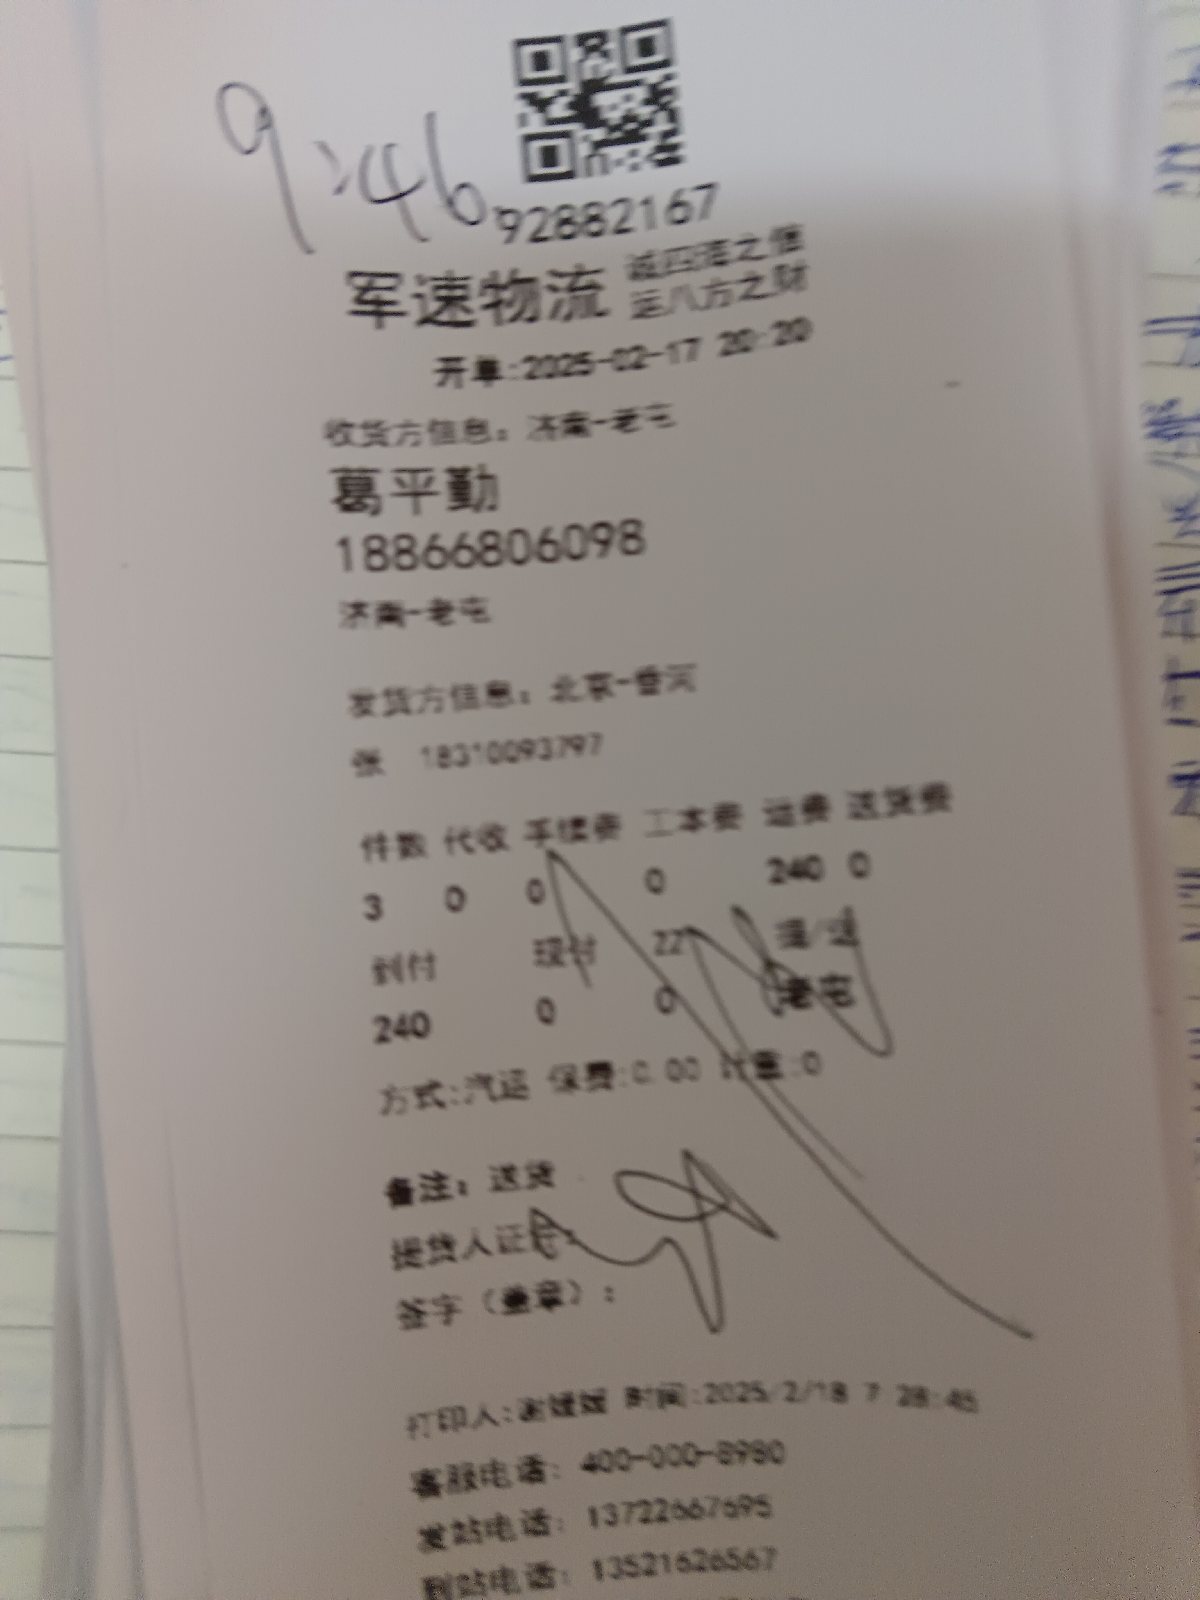 9:46
92882167
军速物流 诚四海之信
运八方之财
开单:2025-02-17 20:20
收货方信息：济南-老屯
葛平勤
18866806098
济南-老屯
发货方信息：北京-香河
张 18310093797
件数 代收 手续费 工本费 运费 送货费
3 0 0 0 240 0
到付 现付 提/送
240 0 0 老屯
方式:汽运 保费:0.00 计重:0
备注：送货
提货人证
签字（盖章）：
打印人:谢媛媛 时间:2025/2/18 7:28:45
客服电话：400-000-8980
发站电话：13722667695
到站电话：13521626567